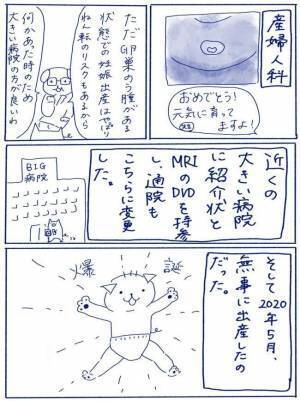 産婦人科
おめでとう！
元気に育って
ますよ！
ただ卵巣のう腫がある
状態での妊娠出産はやはり
ねん転のリスクもあるから
何かあった時のため
大きい病院の方が良いわ
近くの
大きい病院
に紹介状と
MRIの
DVDを持参
し、通院も
こちらに変更
した。
BIG
病院
そして2020年5月、
無事に出産したの
だった。
爆誕